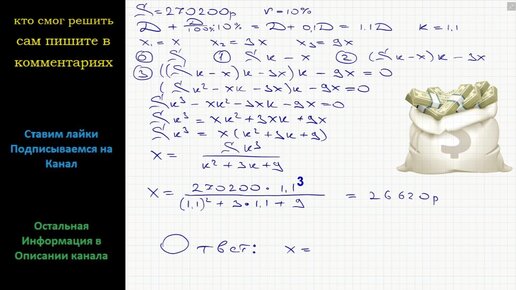 кто смог решить
сам пишите в
комментариях
Ставим лайки
Подписываемся на
Канал
Остальная
Информация в
Описании канала
S = 270200р r = 10%
D + D/100% · 10% = D + 0,1D = 1.1D k = 1,1
x₁ = x x₂ = 3x x₃ = 9x
⓪ S ① Sk - x ② (Sk - x)k - 3x
③ ((Sk - x)k - 3x)k - 9x = 0
(Sk² - xk - 3x)k - 9x = 0
Sk³ - xk² - 3xk - 9x = 0
Sk³ = xk² + 3xk + 9x
Sk³ = x(k² + 3k + 9)
x = Sk³/(k² + 3k + 9)
x = 270200 · 1,1³/((1,1)² + 3 · 1,1 + 9) = 26620р
Ответ: x =